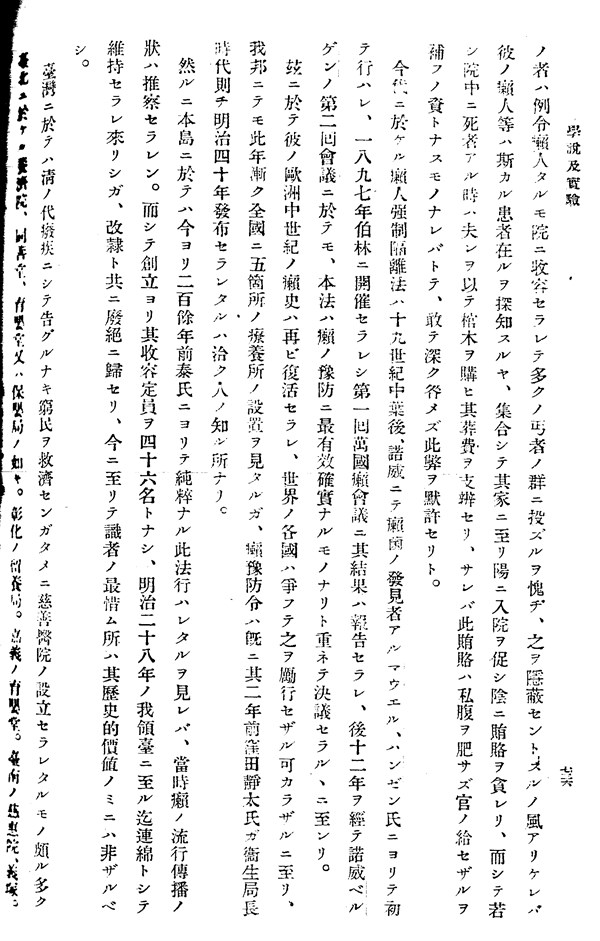 學說及實驗
ノ者ハ例令癩人タルモ院ニ收容セラレテ多クノ丐者ノ群ニ投ズルヲ愧ヂ、之ヲ隱蔽セントスルノ風アリケレバ
彼ノ癩人等ハ斯カル患者在ルヲ探知スルヤ、集合シテ其家ニ至リ陽ニ入院ヲ促シ陰ニ賄賂ヲ貪レリ、而シテ若
シ院中ニ死者アル時ハ夫レヲ以テ棺木ヲ購ヒ其葬費ヲ支辨セリ、サレバ此賄賂ハ私腹ヲ肥サズ官ノ給セザルヲ
補フノ資トナスモノナレバトテ、敢テ深ク咎メズ此弊ヲ默許セリト。
今代ニ於ケル癩人强制隔離法ハ十九世紀中葉後、諾威ニテ癩菌ノ發見者アルマウエル、ハンゼン氏ニヨリテ初
テ行ハレ、一八九七年伯林ニ開催セラレシ第一回萬國癩會議ニ其結果ハ報告セラレ、後十二年ヲ經テ諾威ベル
ゲンノ第二回會議ニ於テモ、本法ハ癩ノ豫防ニ最有效確實ナルモノナリト重ネテ決議セラルヽニ至レリ。
玆ニ於テ彼ノ歐洲中世紀ノ癩史ハ再ビ復活セラレ、世界ノ各國ハ爭フテ之ヲ勵行セザル可カラザルニ至リ、
我邦ニテモ此年漸ク全國ニ五箇所ノ療養所ノ設置ヲ見タルガ、癩豫防令ハ旣ニ其二年前窪田靜太氏ガ衞生局長
時代則チ明治四十年發布セラレタルハ洽ク人ノ知ル所ナリ。
然ルニ本島ニ於テハ今ヨリ二百餘年前秦氏ニヨリテ純粹ナル此法行ハレタルヲ見レバ、當時癩ノ流行傳播ノ
狀ハ推察セラレン。而シテ創立ヨリ其收容定員ヲ四十六名トナシ、明治二十八年ノ我領臺ニ至ル迄連綿トシテ
維持セラレ來リシガ、改隷ト共ニ廢絕ニ歸セリ、今ニ至リテ識者ノ最惜ム所ハ其歷史的價値ノミニハ非ザルベ
シ。
臺灣ニ於テハ淸ノ代癈疾ニシテ告グルナキ窮民ヲ救濟センガタメニ慈善醫院ノ設立セラレタルモノ頗ル多ク
臺北ニ於ケル養濟院、同善堂、育嬰堂又ハ保嬰局ノ如キ。彰化ノ留養局。嘉義ノ育嬰堂。臺南ノ慈惠院、義塚